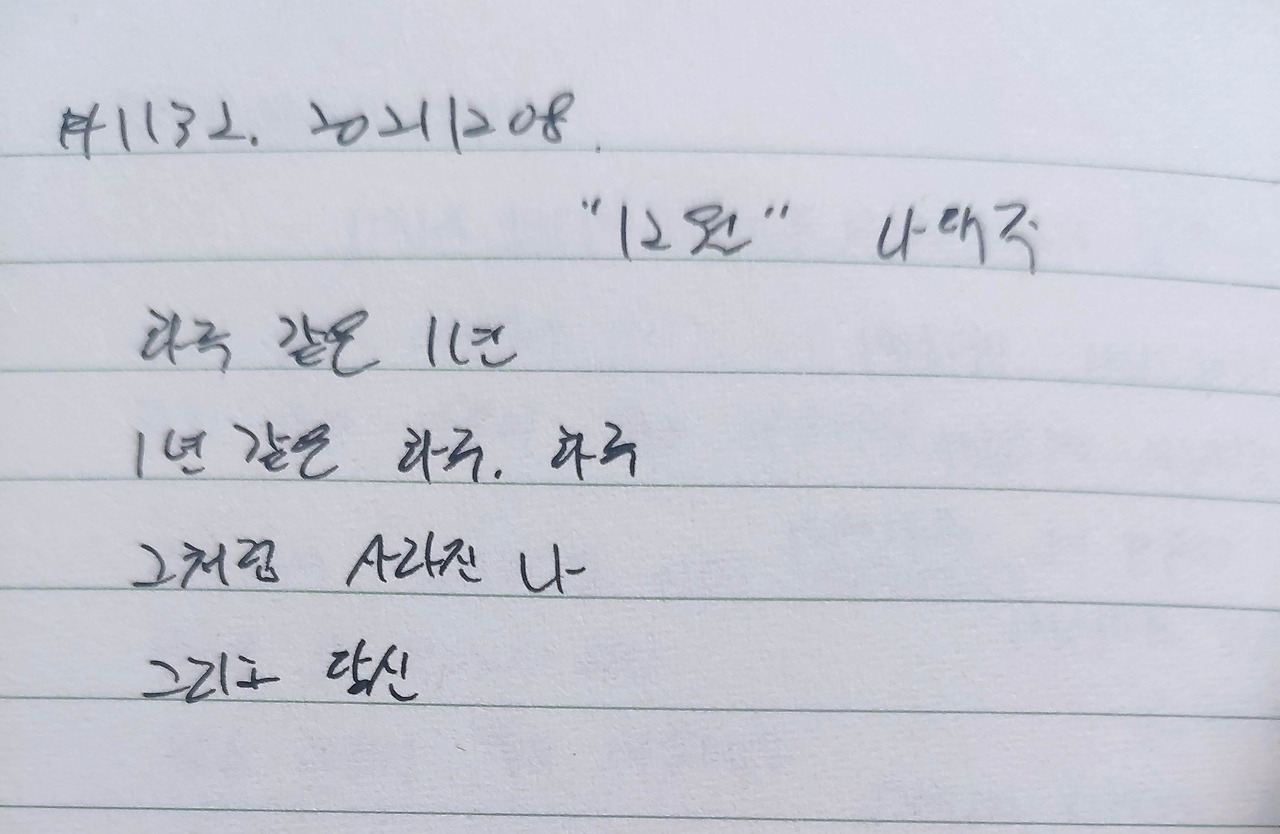 #1132. 20211208.
"12월" 나태주
하루 같은 1년
1년 같은 하루, 하루
그처럼 사라진 나
그리고 당신